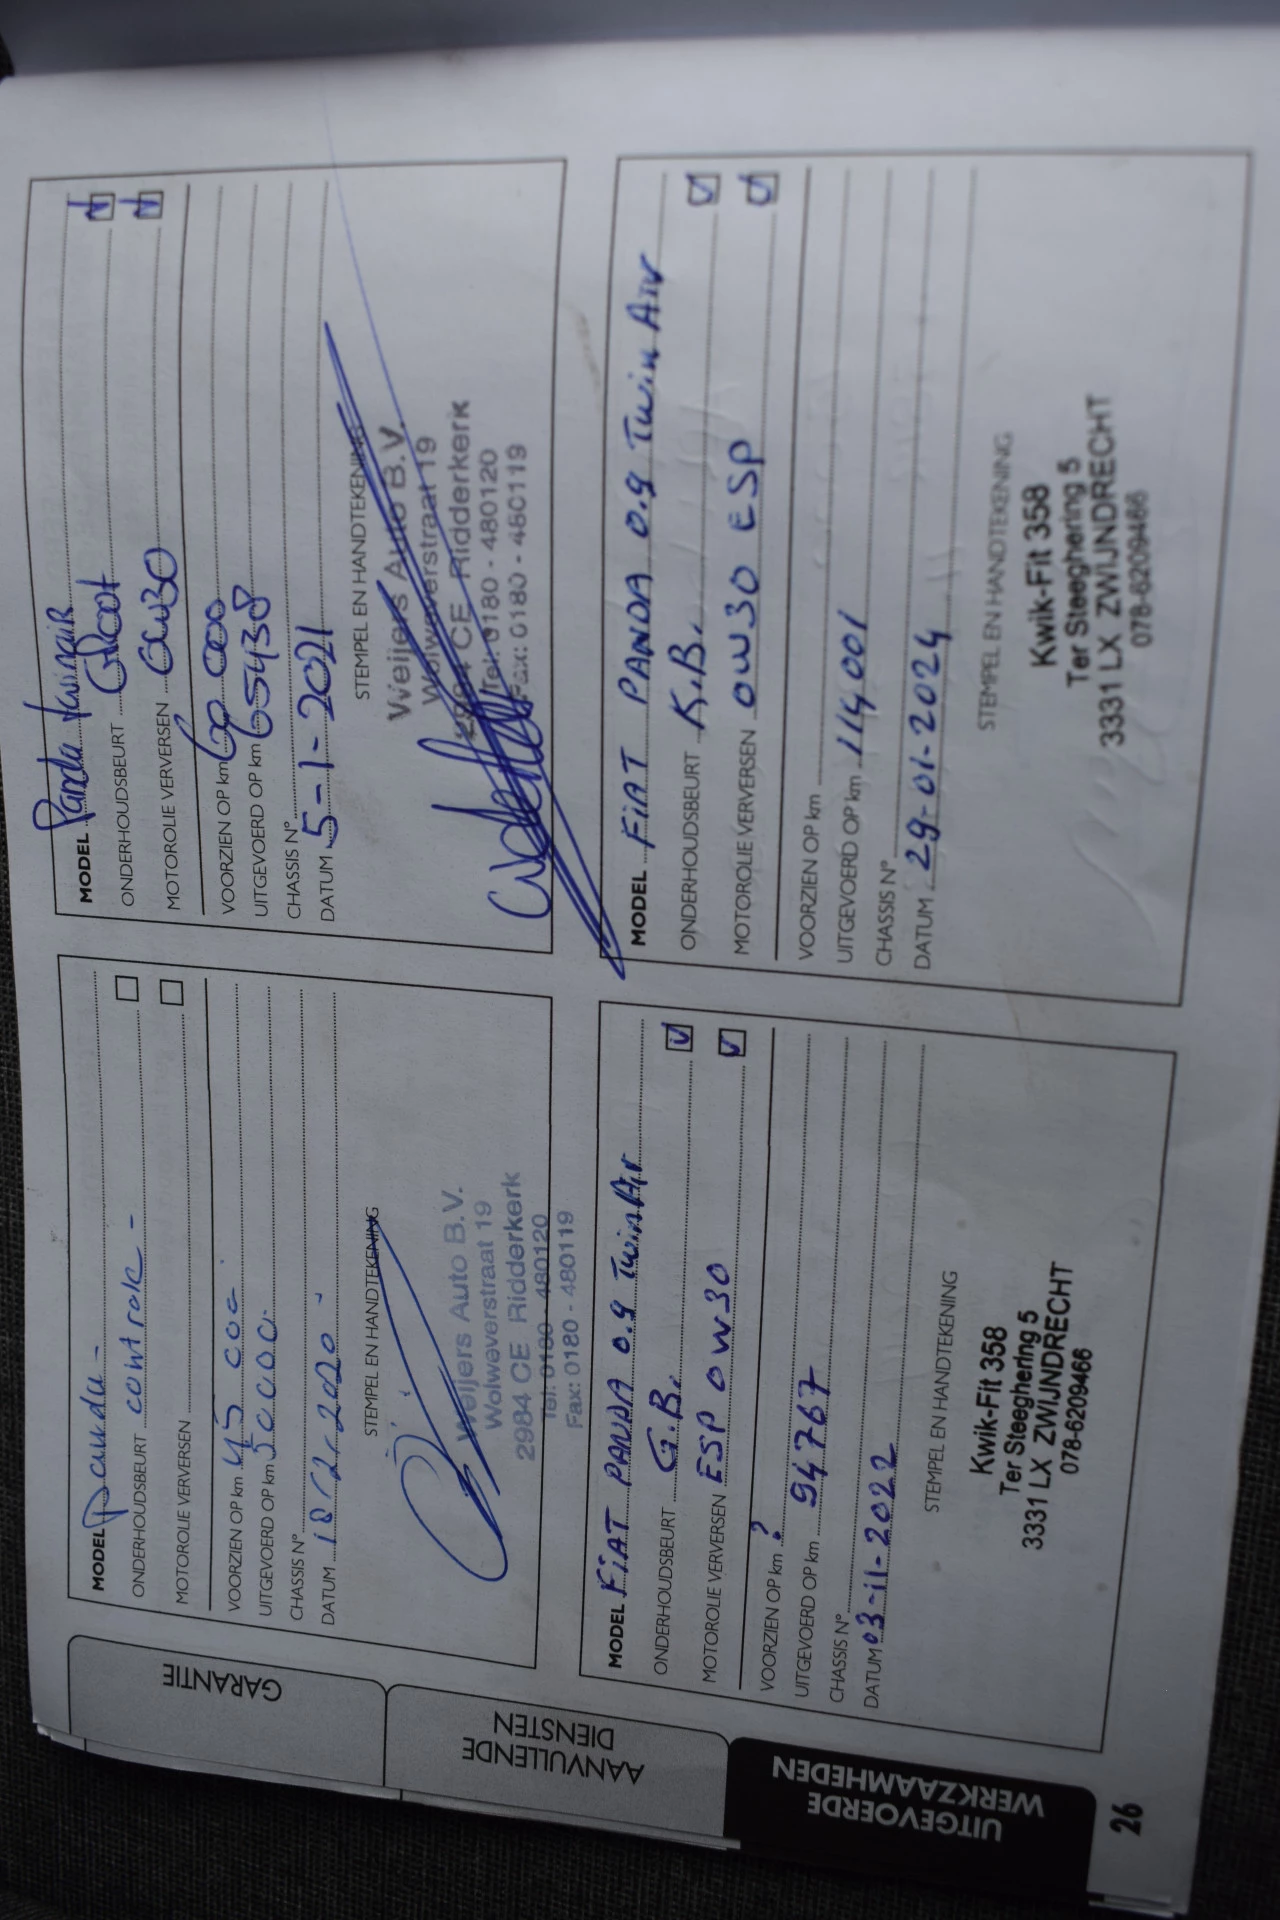 MODEL panda -
ONDERHOUDSBEURT controle -
MOTOROLIE VERVERSEN
VOORZIEN OP km 45 000
UITGEVOERD OP km 50 000.
CHASSIS N°
DATUM
STEMPEL EN HANDTEKENING
Weijers Auto B.V.
Wolweverstraat 19
2984 CE Ridderkerk
Tel: 0180 - 480120
Fax: 0180 - 480119
MODEL Panda twinair
ONDERHOUDSBEURT Groot
MOTOROLIE VERVERSEN 0W30
VOORZIEN OP km 60 000
UITGEVOERD OP km 65438
CHASSIS N°
DATUM 5-1-2021
STEMPEL EN HANDTEKENING
Weijers Auto B.V.
Wolweverstraat 19
2984 CE Ridderkerk
Tel: 0180 - 480120
Fax: 0180 - 480119
MODEL FIAT PANDA 0.9 TwinAir
ONDERHOUDSBEURT G.B.
MOTOROLIE VERVERSEN ESP 0W30
VOORZIEN OP km ?
UITGEVOERD OP km 94767
CHASSIS N°
DATUM 03-11-2022
STEMPEL EN HANDTEKENING
Kwik-Fit 358
Ter Steeghering 5
3331 LX ZWIJNDRECHT
078-6209466
MODEL FIAT PANDA 0.9 Twin Air
ONDERHOUDSBEURT K.B.
MOTOROLIE VERVERSEN 0W30 ESP
VOORZIEN OP km
UITGEVOERD OP km 114001
CHASSIS N°
DATUM 29-01-2024
STEMPEL EN HANDTEKENING
Kwik-Fit 358
Ter Steeghering 5
3331 LX ZWIJNDRECHT
078-6209466
GARANTIE
AANVULLENDE
DIENSTEN
UITGEVOERDE
WERKZAAMHEDEN
26